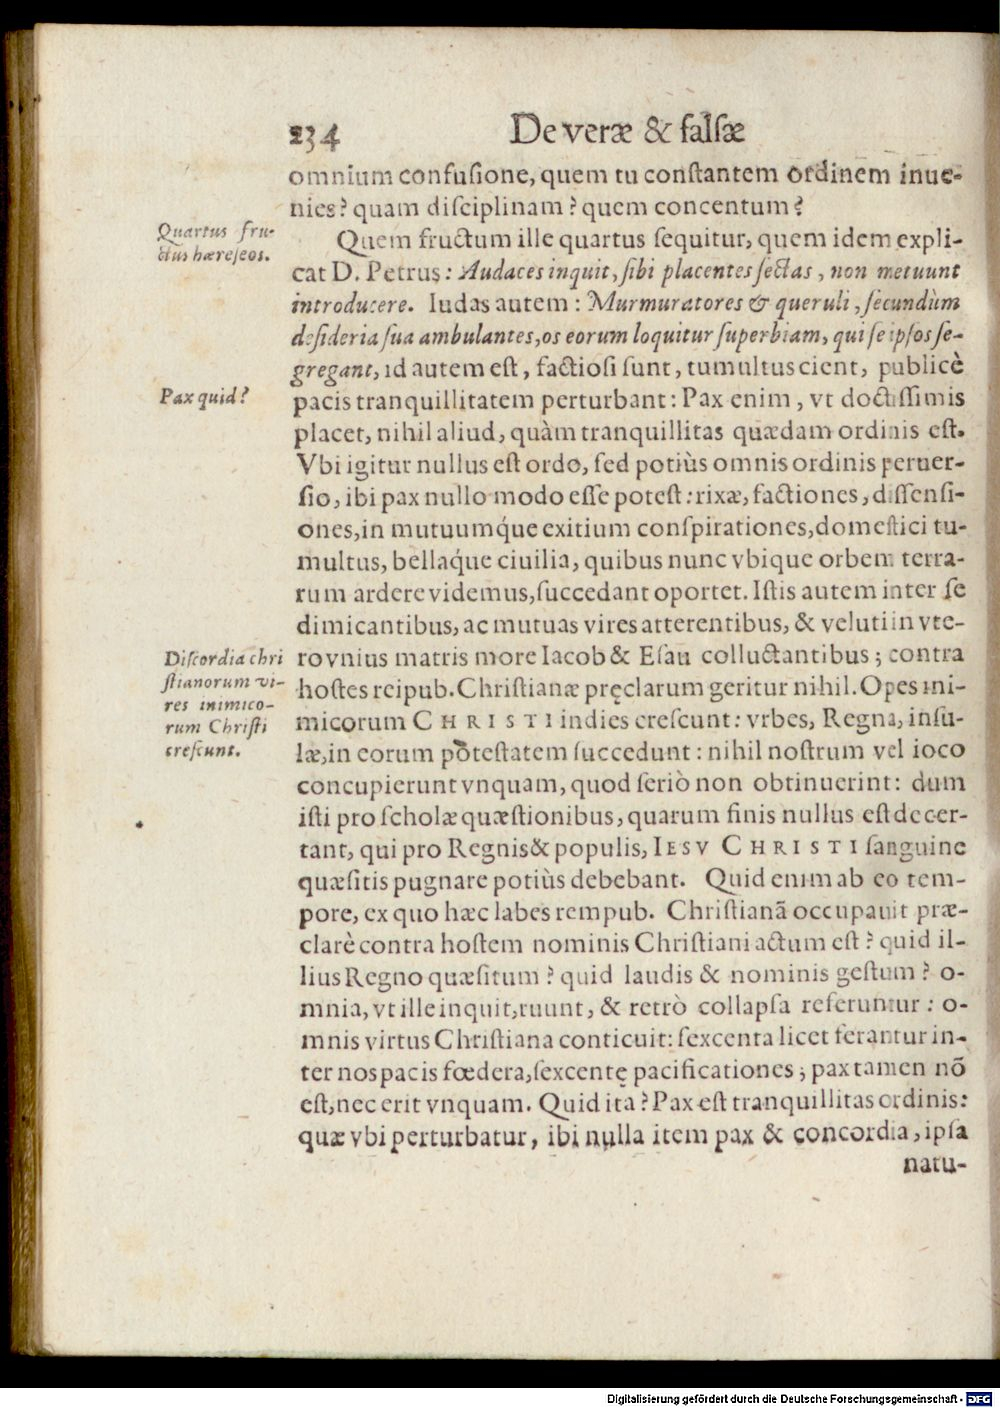 234 De veræ & falsæ
omnium confusione, quem tu constantem ordinem inue-
nies? quam disciplinam? quem concentum?
Quartus fru-
ctus hæreseos.
Quem fructum ille quartus sequitur, quem idem expli-
cat D. Petrus: Audaces inquit, sibi placentes sectas, non metuunt
introducere. Iudas autem: Murmuratores & queruli, secundùm
desideria sua ambulantes, os eorum loquitur superbiam, qui se ipsos se-
gregant, id autem est, factiosi sunt, tumultus cient, publicè
Pax quid?
pacis tranquillitatem perturbant: Pax enim, vt doctissimis
placet, nihil aliud, quàm tranquillitas quædam ordinis est.
Vbi igitur nullus est ordo, sed potiùs omnis ordinis peruer-
sio, ibi pax nullo modo esse potest: rixæ, factiones, dissensi-
ones, in mutuumq́ue exitium conspirationes, domestici tu-
multus, bellaq́ue ciuilia, quibus nunc vbique orbem terra-
rum ardere videmus, succedant oportet. Istis autem inter se
dimicantibus, ac mutuas vires atterentibus, & veluti in vte-
Discordia chri
stianorum vi-
res inimico-
rum Christi
crescunt.
ro vnius matris more Iacob & Esau colluctantibus; contra
hostes reipub. Christianæ pręclarum geritur nihil. Opes ini-
micorum CHRISTI indies crescunt: vrbes, Regna, insu-
læ, in eorum potestatem succedunt: nihil nostrum vel ioco
concupierunt vnquam, quod seriò non obtinuerint: dum
isti pro scholæ quæstionibus, quarum finis nullus est decer-
tant, qui pro Regnis & populis, IESV CHRISTI sanguine
quæsitis pugnare potiùs debebant. Quid enim ab eo tem-
pore, ex quo hæc labes rempub. Christianã occupauit præ-
clarè contra hostem nominis Christiani actum est? quid il-
lius Regno quæsitum? quid laudis & nominis gestum? o-
mnia, vt ille inquit, ruunt, & retrò collapsa referuntur: o-
mnis virtus Christiana conticuit: sexcenta licet ferantur in-
ter nos pacis fœdera, sexcentę pacificationes; pax tamen nõ
est, nec erit vnquam. Quid ita? Pax est tranquillitas ordinis:
quæ vbi perturbatur, ibi nulla item pax & concordia, ipsa
natu-
Digitalisierung gefördert durch die Deutsche Forschungsgemeinschaft - DFG